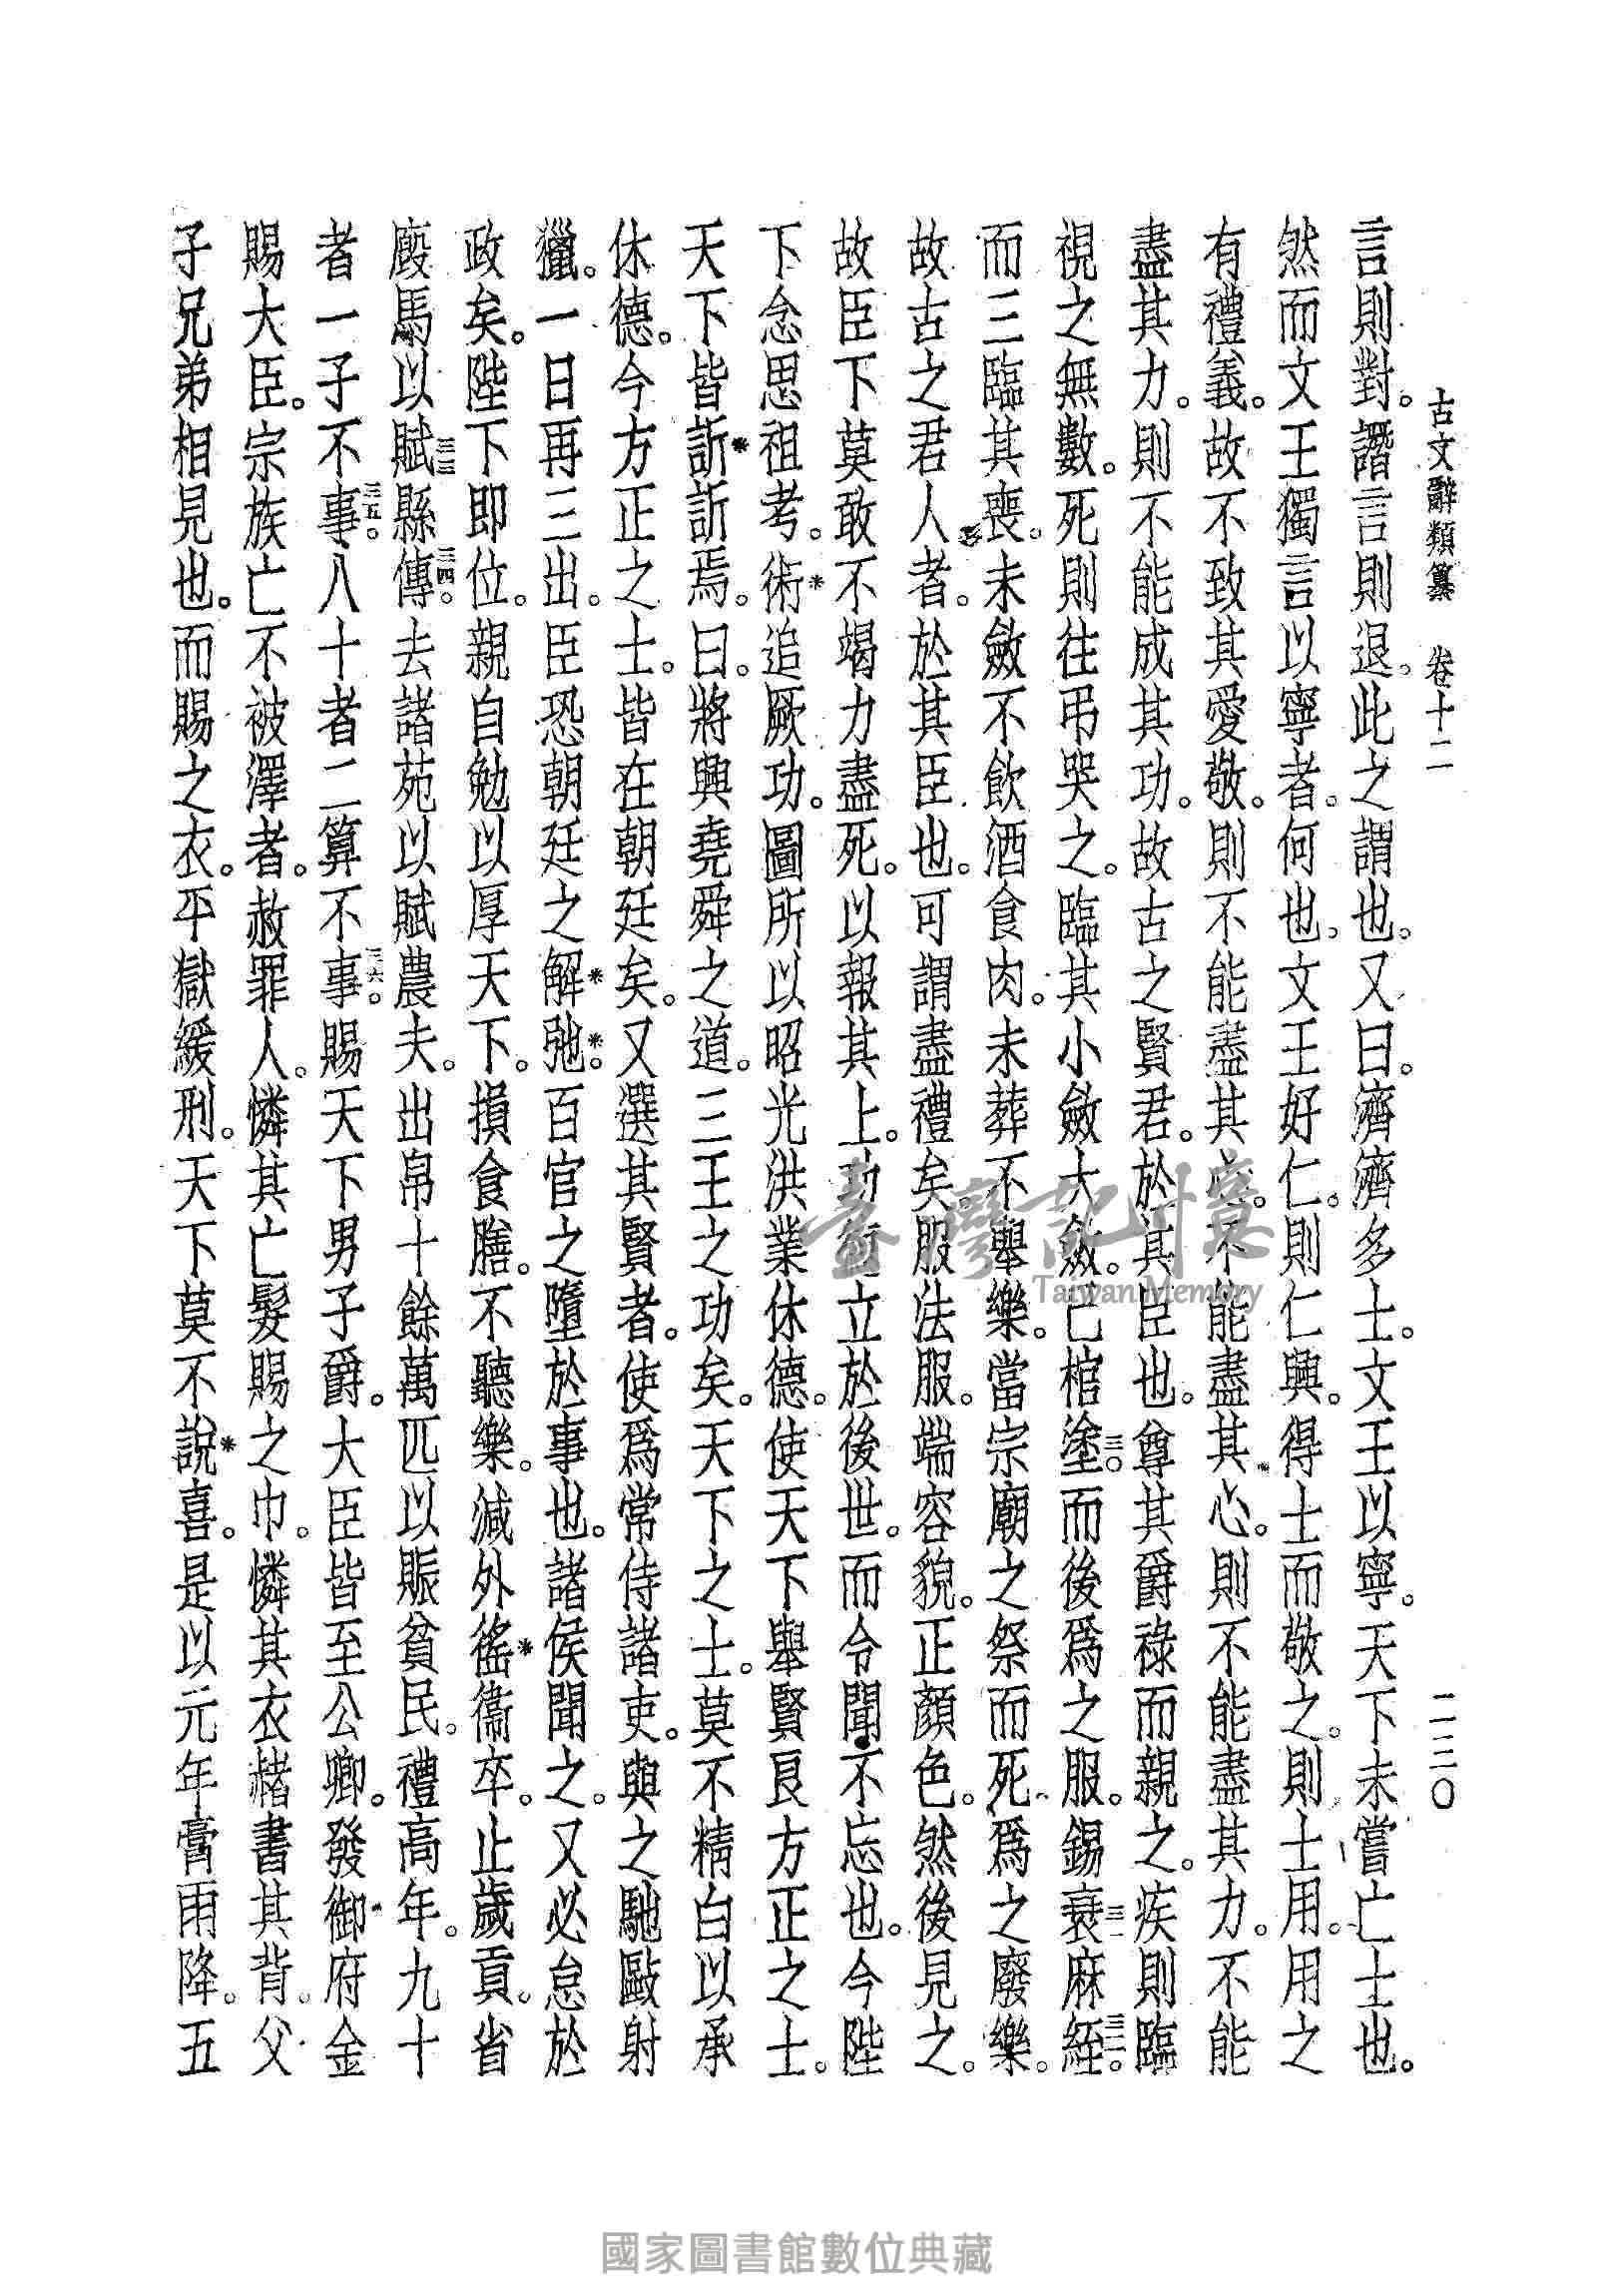 古文辭類纂 卷十二 二三〇
言則對。譖言則退。此之謂也。又曰。濟濟多士。文王以寧。天下未嘗亡士也。
然而文王獨言以寧者。何也。文王好仁。則仁興。得士而敬之。則士用。用之
有禮義。故不致其愛敬。則不能盡其心。不能盡其心。則不能盡其力。不能
盡其力。則不能成其功。故古之賢君。於其臣也。尊其爵祿而親之。疾則臨
視之無數。死則往弔哭之。臨其小斂大斂。已棺塗三〇而後爲之服。錫衰三一麻絰三二。
而三臨其喪。未斂不飲酒食肉。未葬不舉樂。當宗廟之祭而死。爲之廢樂。
故古之君人者。於其臣也。可謂盡禮矣。服法服。端容貌。正顏色。然後見之。
故臣下莫敢不竭力盡死。以報其上。功立於後世。而令聞不忘也。今陛
下念思祖考。術*追厥功。圖所以昭光洪業休德。使天下舉賢良方正之士。
天下皆訢*訢焉。曰。將興堯舜之道。三王之功矣。天下之士。莫不精白以承
休德。今方正之士。皆在朝廷矣。又選其賢者。使爲常侍諸吏。與之馳敺射
獵。一日再三出。臣恐朝廷之解*弛*。百官之墮於事也。諸侯聞之。又必怠於
政矣。陛下即位。親自勉以厚天下。損食膳。不聽樂。減外徭*衞卒。止歲貢。省
廄馬以賦三三縣傳三四。去諸苑以賦農夫。出帛十餘萬匹以賑貧民。禮高年。九十
者一子不事三五。八十者二算不事三六。賜天下男子爵。大臣皆至公卿。發御府金
賜大臣。宗族亡不被澤者。赦罪人。憐其亡髮賜之巾。憐其衣赭書其背。父
子兄弟相見也。而賜之衣。平獄緩刑。天下莫不說*喜。是以元年膏雨降。五
臺灣記憶
Taiwan Memory
國家圖書館數位典藏